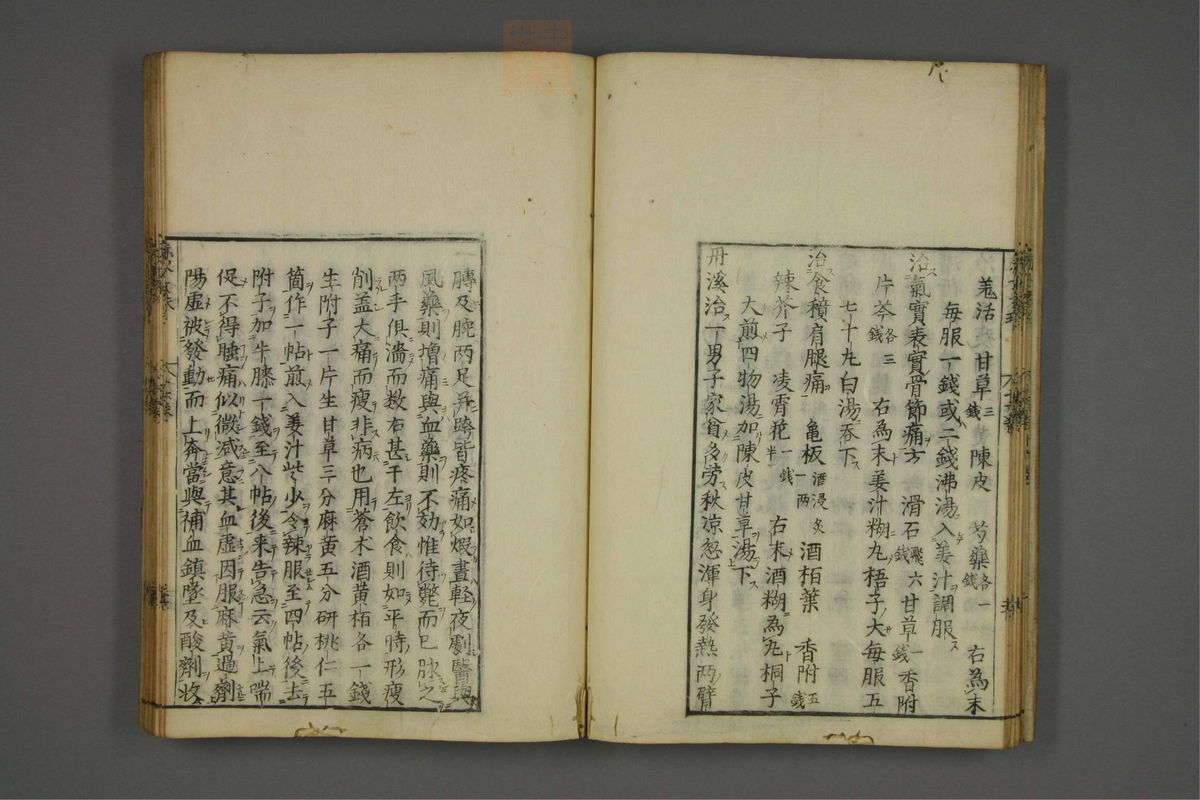 羗活 甘草三錢 陳皮 芍藥各一錢 右為末
每服一錢或二錢沸湯入姜汁調服
治氣實表實骨節痛方 滑石飛六錢 甘草一錢 香附
片芩各三錢 右為末姜汁糊丸梧子大每服五
七十丸白湯吞下
治食積肩腿痛 龜板酒浸炙一兩 酒栢葉 香附五錢
辣芥子 凌霄花一錢半 右末酒糊為丸桐子
大煎四物湯加陳皮甘草湯下
丹溪治一男子家貧多勞秋凉忽渾身發熱两臂
膊及腕两足并胯皆疼痛如煆晝輕夜劇醫與
風藥則增痛與血藥則不効惟待斃而已脉之
两手俱濇而数右甚于左飲食則如平時形瘦
削盖大痛而瘦非病也用蒼术酒黄栢各一錢
生附子一片生甘草三分麻黄五分研桃仁五
箇作一帖煎入姜汁些少令辣服至四帖後去
附子加牛膝一錢至八帖後来告急云氣上喘
促不得睡痛似微减意其血虚因服麻黄過劑
陽虚被發動而上奔當與補血鎮墜及酸劑收